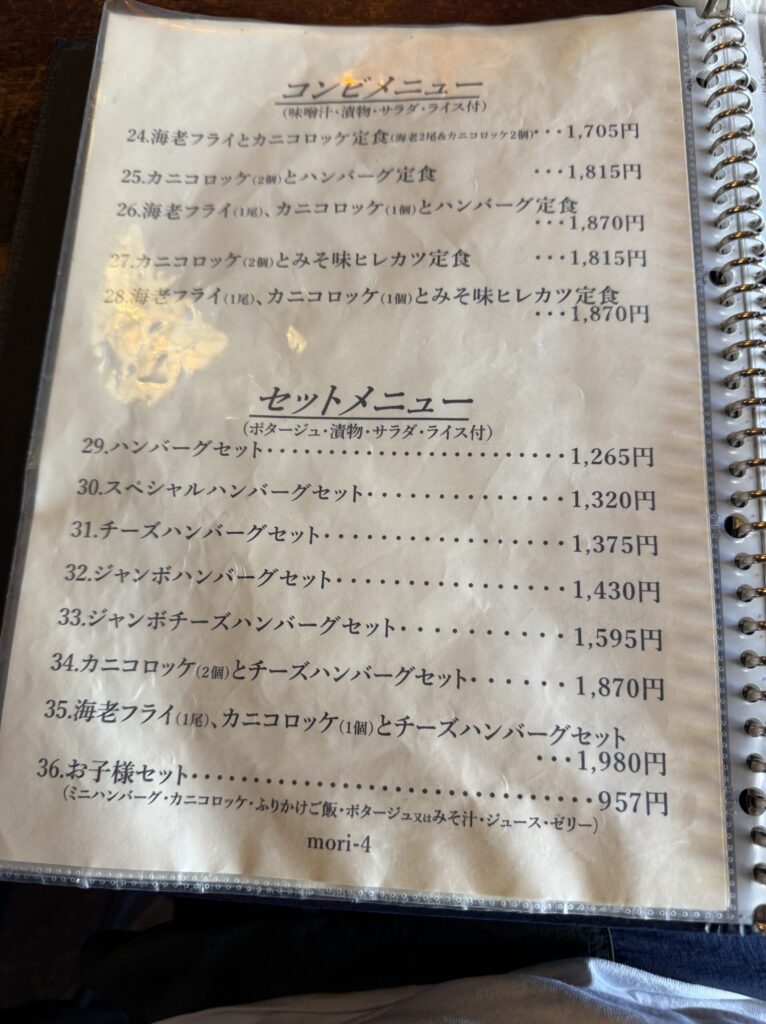 コンビメニュー
(味噌汁・漬物・サラダ・ライス付)
24.海老フライとカニコロッケ定食(海老2尾&カニコロッケ2個)・・・1,705円
25.カニコロッケ(2個)とハンバーグ定食 ・・・1,815円
26.海老フライ(1尾)、カニコロッケ(1個)とハンバーグ定食
・・・1,870円
27.カニコロッケ(2個)とみそ味ヒレカツ定食 ・・・1,815円
28.海老フライ(1尾)、カニコロッケ(1個)とみそ味ヒレカツ定食
・・・1,870円
セットメニュー
(ポタージュ・漬物・サラダ・ライス付)
29.ハンバーグセット・・・・・・・・・・・・・・・・・・・・・・・・1,265円
30.スペシャルハンバーグセット・・・・・・・・・・・・・・・1,320円
31.チーズハンバーグセット・・・・・・・・・・・・・・・・・・1,375円
32.ジャンボハンバーグセット・・・・・・・・・・・・・・・・・1,430円
33.ジャンボチーズハンバーグセット・・・・・・・・・・・1,595円
34.カニコロッケ(2個)とチーズハンバーグセット・・・・・・・1,870円
35.海老フライ(1尾)、カニコロッケ(1個)とチーズハンバーグセット
・・・1,980円
36.お子様セット・・・・・・・・・・・・・・・・・・・・・・・・・・・・・・・957円
(ミニハンバーグ・カニコロッケ・ふりかけご飯・ポタージュ又はみそ汁・ジュース・ゼリー)
mori-4